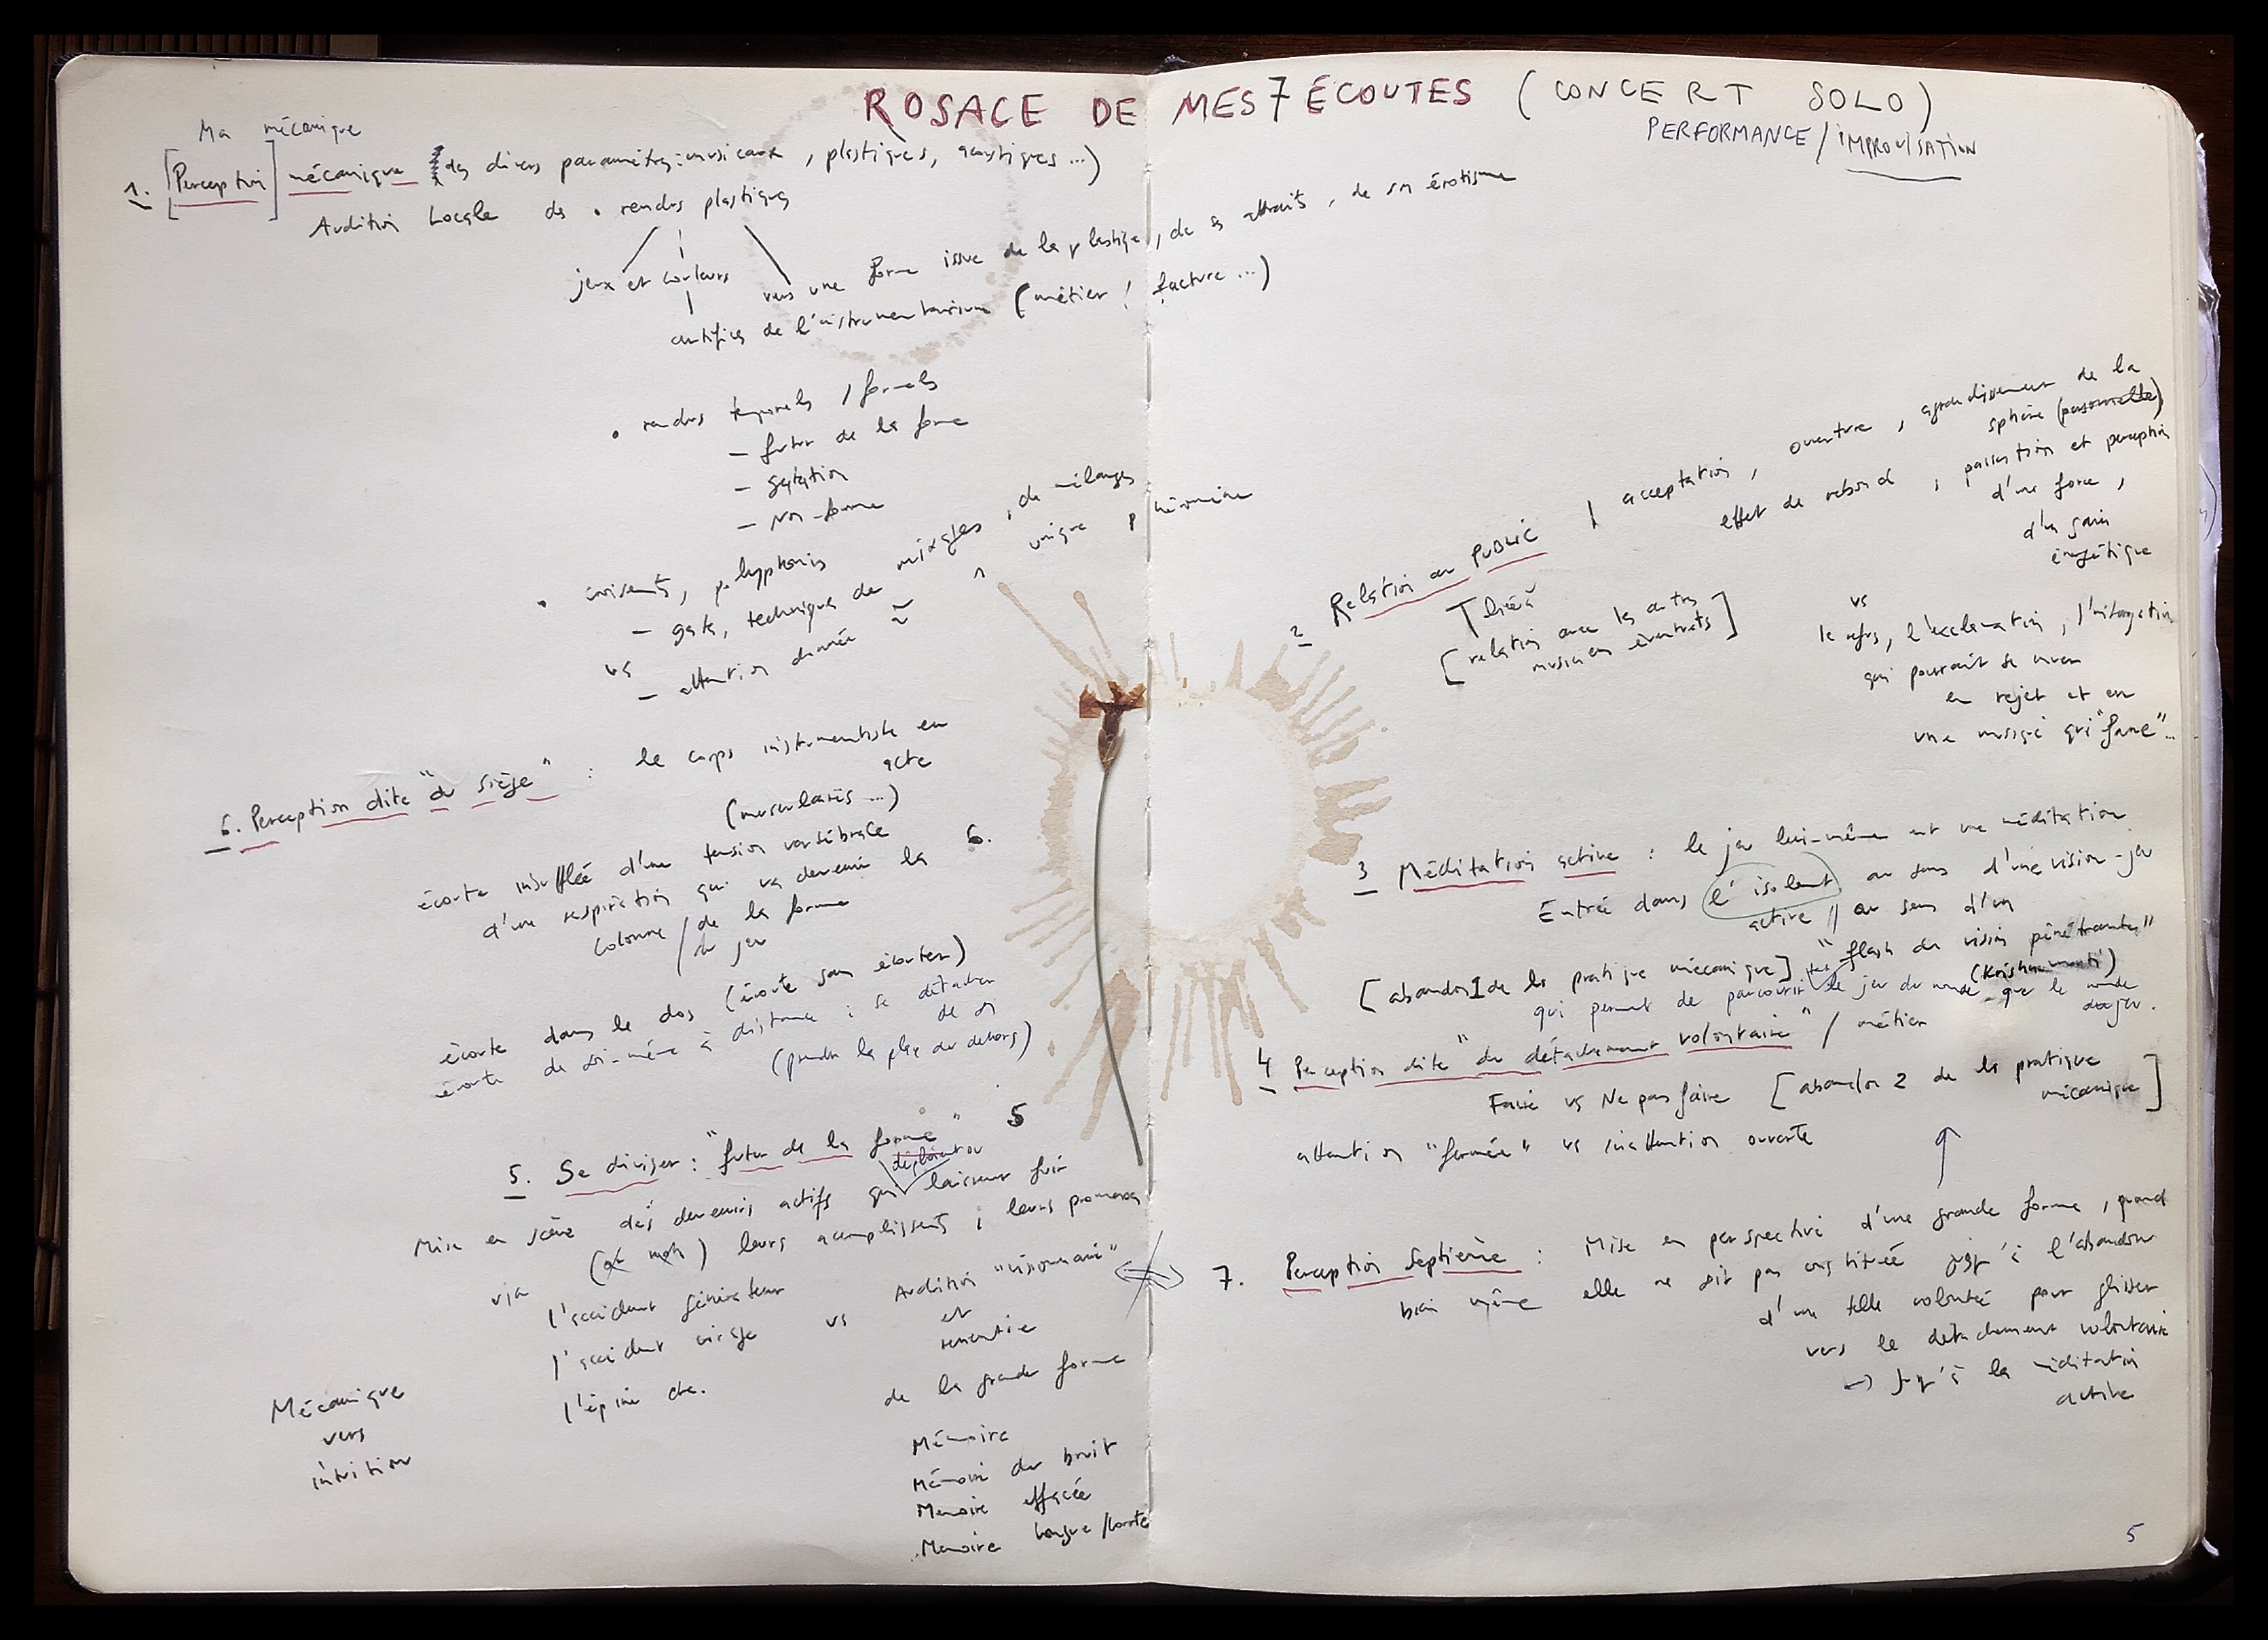 ROSACE DE MES 7 ÉCOUTES (CONCERT SOLO)
PERFORMANCE / IMPROVISATION
Ma mécanique
1. [Perception] mécanique des divers paramètres: musicaux, plastiques, acoustiques ...)
Audition Locale des • rendus plastiques
jeux et couleurs
vers une forme issue de la plastique, de ses attraits, de son érotisme
artifices de l'instrumentarium (métier / facture ...)
• rendus temporels / formels
— futur de la forme
— 
— Non-forme
• croisements, polyphonies
— gestes, techniques de mixages, de mélanges
vs
— attention donnée
unique phéromone
2 Relation au PUBLIC / acceptation, ouverture, agrandissement de la
sphère (personnelle)
effet de rebond, passation et perception
d'une force,
d'un gain
énergétique
liée à
[relation avec les autres
musiciens éventuels]
vs
le refus, l'exclamation, l'interrogation
qui pourrait se muer
en rejet et en
une musique qui "fane"...
3 Méditation active : le jeu lui-même est une méditation
Entrée dans l'isolent au sens d'une vision-jeu
active // au sens d'un
"flash de vision pénétrante"
(Krishnamurti)
[abandon 1 de la pratique mécanique]
qui permet de parcourir le jeu du monde que le monde
4 Perception dite "du détachement volontaire" / métier
Faire vs Ne pas faire [abandon 2 de la pratique
mécanique]
attention "fermée" vs inattention ouverte
5. Se diviser : "futur de la forme" 5
déploient ou
Mise en scène des devenirs actifs qui laissent fuir
via (ou non) leurs accomplissements, leurs promesses
l'accident générateur
l'accident virage
l'épine etc.
vs
Audition "visionnaire"
et
ressentie
de la grande forme
Mémoire
Mémoire du bruit
Mémoire effacée
Mémoire longue / courte
Mécanique
vers
intuition
6. Perception dite "du siège" : le corps instrumentiste en
acte
(musculaires ...)
écoute insufflée d'une tension vertébrale
d'une respiration qui va devenir la 6.
colonne / de la forme
du jeu
écoute dans le dos (écoute sans écouter)
écoute de soi-même à distance : se détacher
de soi
(prendre la place du dehors)
7. Perception Septième : Mise en perspective d'une grande forme, quand
bien même elle ne soit pas constituée jusqu'à l'abandon
d'une telle volonté pour glisser
vers le détachement volontaire
→ jusqu'à la méditation
active
5